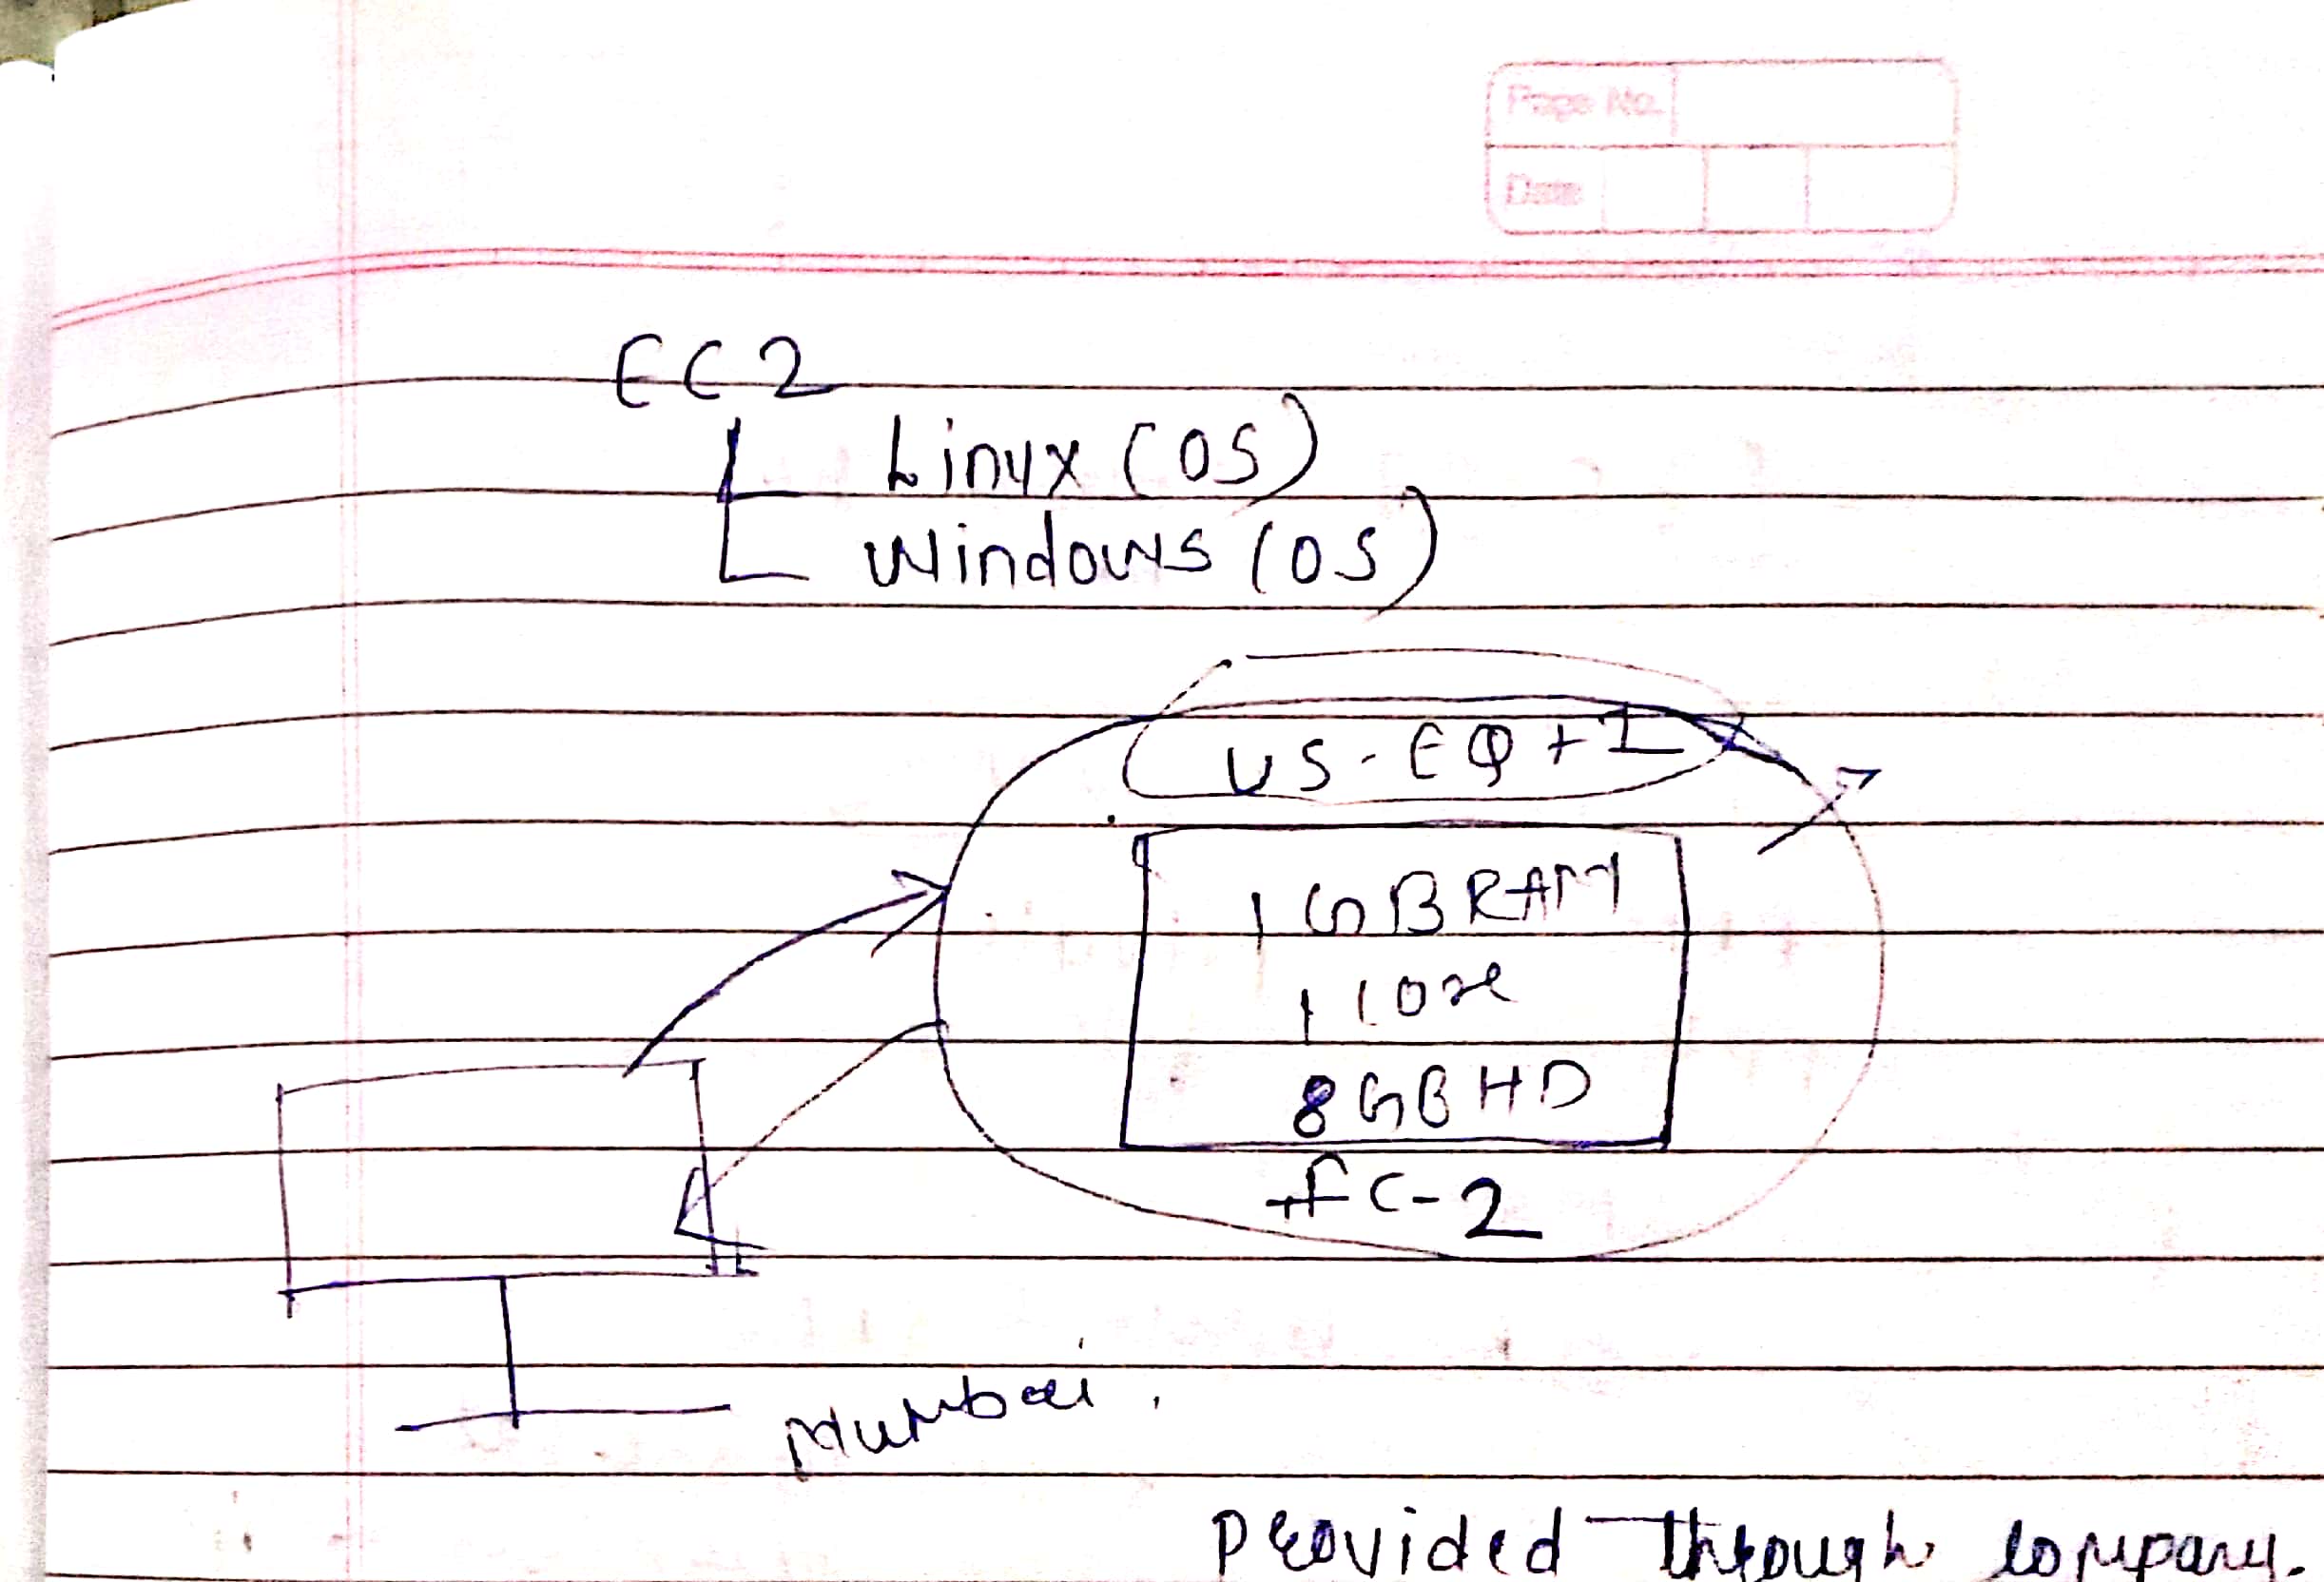 Page No.
Date
EC2
Linux (OS)
Windows (OS)
US-EQ+1
1 GB RAM
1 Core
8 GB HD
EC-2
Mumbai.
Provided through company.